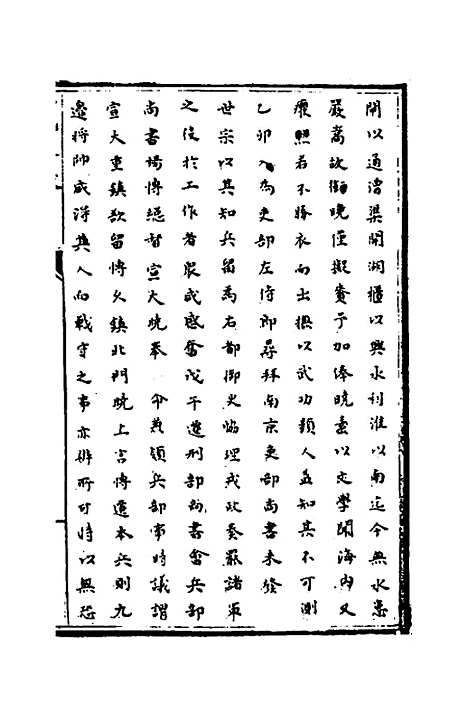 開以通漕渠開湖堰以興水利淮以南迄今無水患
嚴嵩故銜曉僅擬賚予加俸曉壹以文學聞海內又
癯然若不勝衣而出撫以武功顯人益知其不可測
乙卯入為吏部左侍郎尋拜南京吏部尚書未發
世宗以其知兵留為右都御史協理戎政奏嚴諸軍
之役於工作者眾咸感奮戊午遷刑部尚書會兵部
尚書楊博總督宣大曉奉 命兼領兵部事時議謂
宣大重鎮欲留博久鎮北門曉上言博還本兵則九
邊將帥咸得其人而戰守之事亦辦所可時以無恐